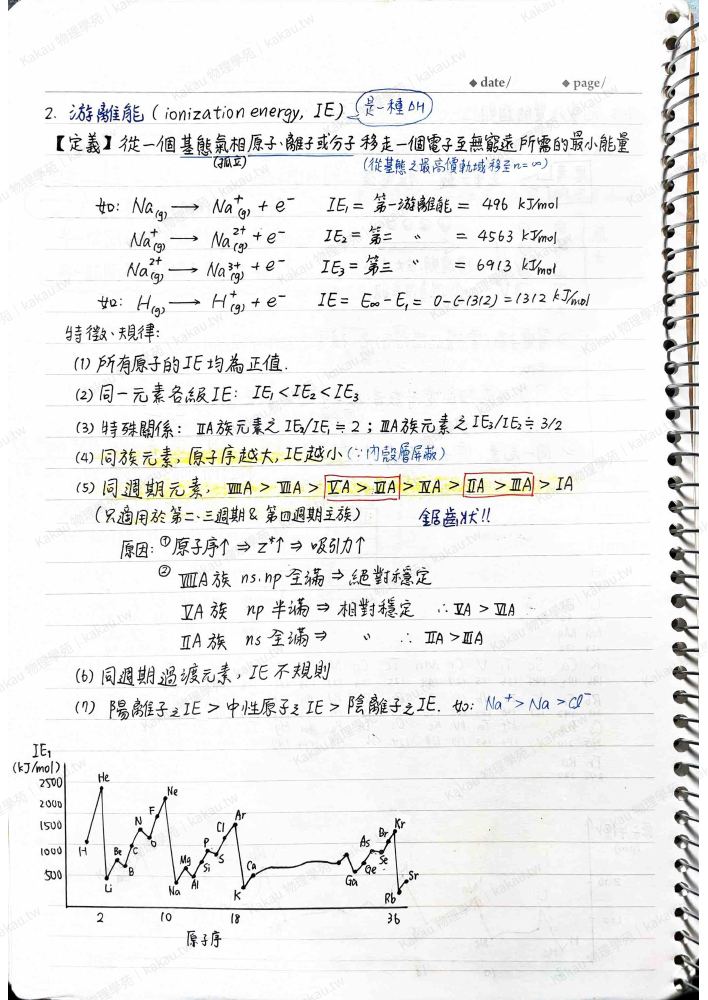 ◆ date/ ◆ page/
2. 游離能 (ionization energy, IE) 是一種 ΔH
【定義】從一個基態氣相原子、離子或分子移走一個電子至無窮遠所需的最小能量
(孤立) (從基態之最高價軌域移至n=∞)
如: Na(g) → Na⁺(g) + e⁻ IE₁ = 第一游離能 = 496 kJ/mol
Na⁺(g) → Na²⁺(g) + e⁻ IE₂ = 第二 〃 = 4563 kJ/mol
Na²⁺(g) → Na³⁺(g) + e⁻ IE₃ = 第三 〃 = 6913 kJ/mol
如: H(g) → H⁺(g) + e⁻ IE = E∞ - E₁ = 0-(-1312) = 1312 kJ/mol
特徵、規律:
(1) 所有原子的IE均為正值.
(2) 同一元素各級IE: IE₁ < IE₂ < IE₃
(3) 特殊關係: ⅡA族元素之IE₂/IE₁ ≒ 2 ; ⅢA族元素之IE₃/IE₂ ≒ 3/2
(4) 同族元素, 原子序越大, IE越小 (∵內殼層屏蔽)
(5) 同週期元素, ⅧA > ⅦA > ⅤA > ⅥA > ⅣA > ⅡA > ⅢA > ⅠA
(只適用於第二、三週期 & 第四週期主族) 鋸齒狀!!
原因: ① 原子序↑ ⇒ Z*↑ ⇒ 吸引力↑
② ⅧA族 ns.np 全滿 ⇒ 絕對穩定
ⅤA族 np 半滿 ⇒ 相對穩定 ∴ ⅤA > ⅥA
ⅡA族 ns 全滿 ⇒ 〃 ∴ ⅡA > ⅢA
(6) 同週期過渡元素, IE不規則
(7) 陽離子之IE > 中性原子之IE > 陰離子之IE. 如: Na⁺ > Na > Cl⁻
IE₁
(kJ/mol)
2500
2000
1500
1000
500
H He Li Be B C N O F Ne Na Mg Al Si P S Cl Ar K Ca Ga Ge As Se Br Kr Rb Sr
2 10 18 36
原子序
Kakau 物理學苑 | kakau.tw